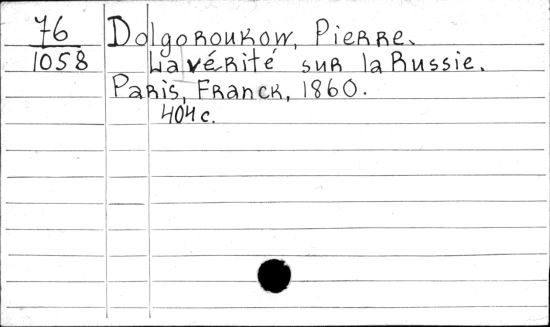 76 Dolgoroukow, Pierre.
1058 La vérité sur la Russie.
Paris, Franck, 1860.
404 c.